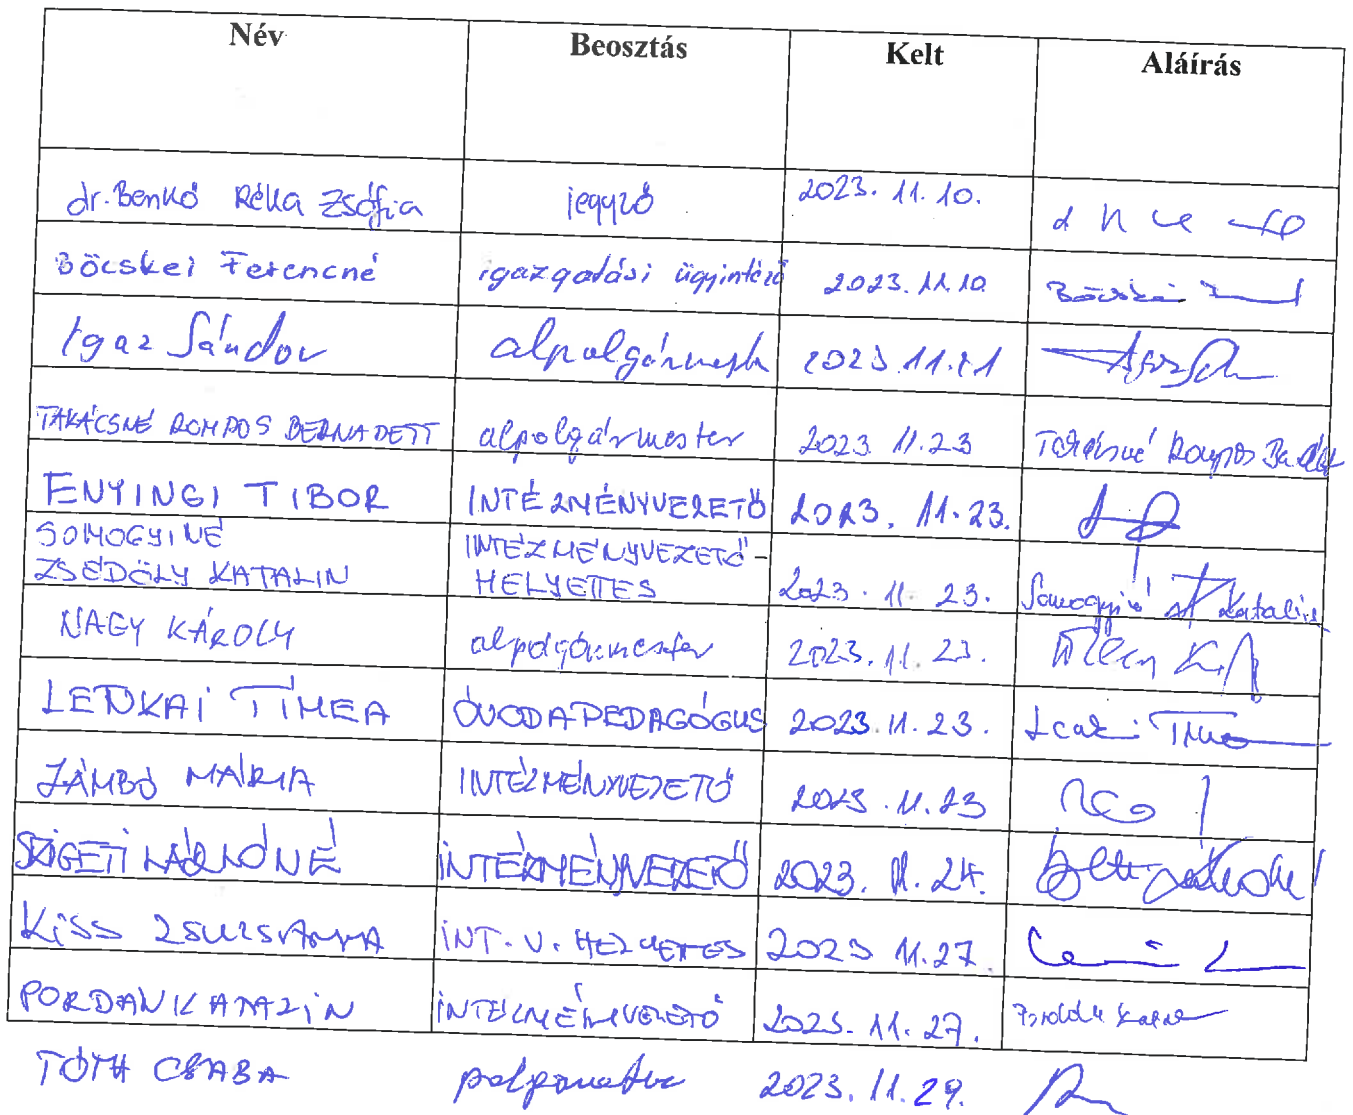 Név Beosztás Kelt Aláírás
dr. Benkó Réka Zsófia jegyző 2023. 11. 10.
Böcskei Ferencné igazgatási ügyintéző 2023. 11. 10. Böcskei
Igaz Sándor alpolgármester 2023 11.21
TAKÁCSNÉ ROMPOS BERNADETT alpolgármester 2023 11.23 Takácsné Rompos
ENYINGI TIBOR INTÉZMÉNYVEZETŐ 2023. 11. 23.
SOMOGYINÉ
ZSÉDÖLY KATALIN
INTÉZMÉNYVEZETŐ-
HELYETTES
2023. 11. 23. Somogyiné Katalin
NAGY KÁROLY alpolgármester 2023. 11. 23.
TÍMEA ÓVODAPEDAGÓGUS 2023. 11. 23.
ZÁMBÓ MÁRIA INTÉZMÉNYVEZETŐ 2023. 11. 23
SZIGETI LÁSZLÓNÉ INTÉZMÉNYVEZETŐ 2023. 11. 24.
KISS ZSUZSANNA INT. V. HELYETTES 2023 11. 27.
KATALIN INTÉZMÉNYVEZETŐ 2023. 11. 27.
TÓTH CSABA polgármester 2023. 11. 29.